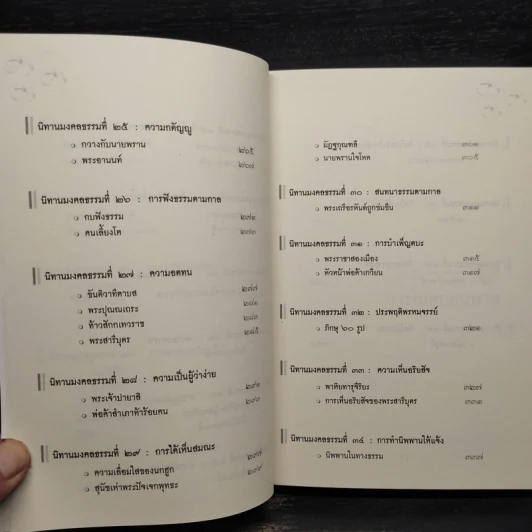 นิทานมงคลธรรมที่ ๒๕ : ความกตัญญู
๐ กวางกับนายพราน ๒๖๕
๐ พระอานนท์ ๒๖๗
นิทานมงคลธรรมที่ ๒๖ : การฟังธรรมตามกาล
๐ กบฟังธรรม ๒๗๑
๐ คนเลี้ยงโค ๒๗๓
นิทานมงคลธรรมที่ ๒๗ : ความอดทน
๐ ขันติวาทีดาบส ๒๗๗
๐ พระปุณณเถระ ๒๘๑
๐ ท้าวสักกเทวราช ๒๘๓
๐ พระสารีบุตร ๒๘๕
นิทานมงคลธรรมที่ ๒๘ : ความเป็นผู้ว่าง่าย
๐ พระเจ้าปายาสิ ๒๙๑
๐ พ่อค้าสำเภาห้าร้อยคน ๒๙๓
นิทานมงคลธรรมที่ ๒๙ : การได้เห็นสมณะ
๐ ความเลื่อมใสของนกฮูก ๒๙๗
๐ สุนัขเห่าพระปัจเจกพุทธะ ๒๙๙
๐ มัฏฐกุณฑลี ๓๐๑
๐ นายพรานใจโหด ๓๐๕
นิทานมงคลธรรมที่ ๓๐ : สนทนาธรรมตามกาล
๐ พระเถรีอรพินต์ถูกข่มขืน ๓๑๑
นิทานมงคลธรรมที่ ๓๑ : การบำเพ็ญตบะ
๐ พระราชาสองเมือง ๓๑๕
๐ หัวหน้าพ่อค้าเกวียน ๓๑๗
นิทานมงคลธรรมที่ ๓๒ : ประพฤติพรหมจรรย์
๐ ภิกษุ ๖๐ รูป ๓๒๑
นิทานมงคลธรรมที่ ๓๓ : ความเห็นอริยสัจ
๐ พาหิยทารุจิริยะ ๓๒๗
๐ การเห็นอริยสัจของพระสารีบุตร ๓๓๑
นิทานมงคลธรรมที่ ๓๔ : การทำนิพพานให้แจ้ง
๐ นิพพานในทางธรรม ๓๓๗